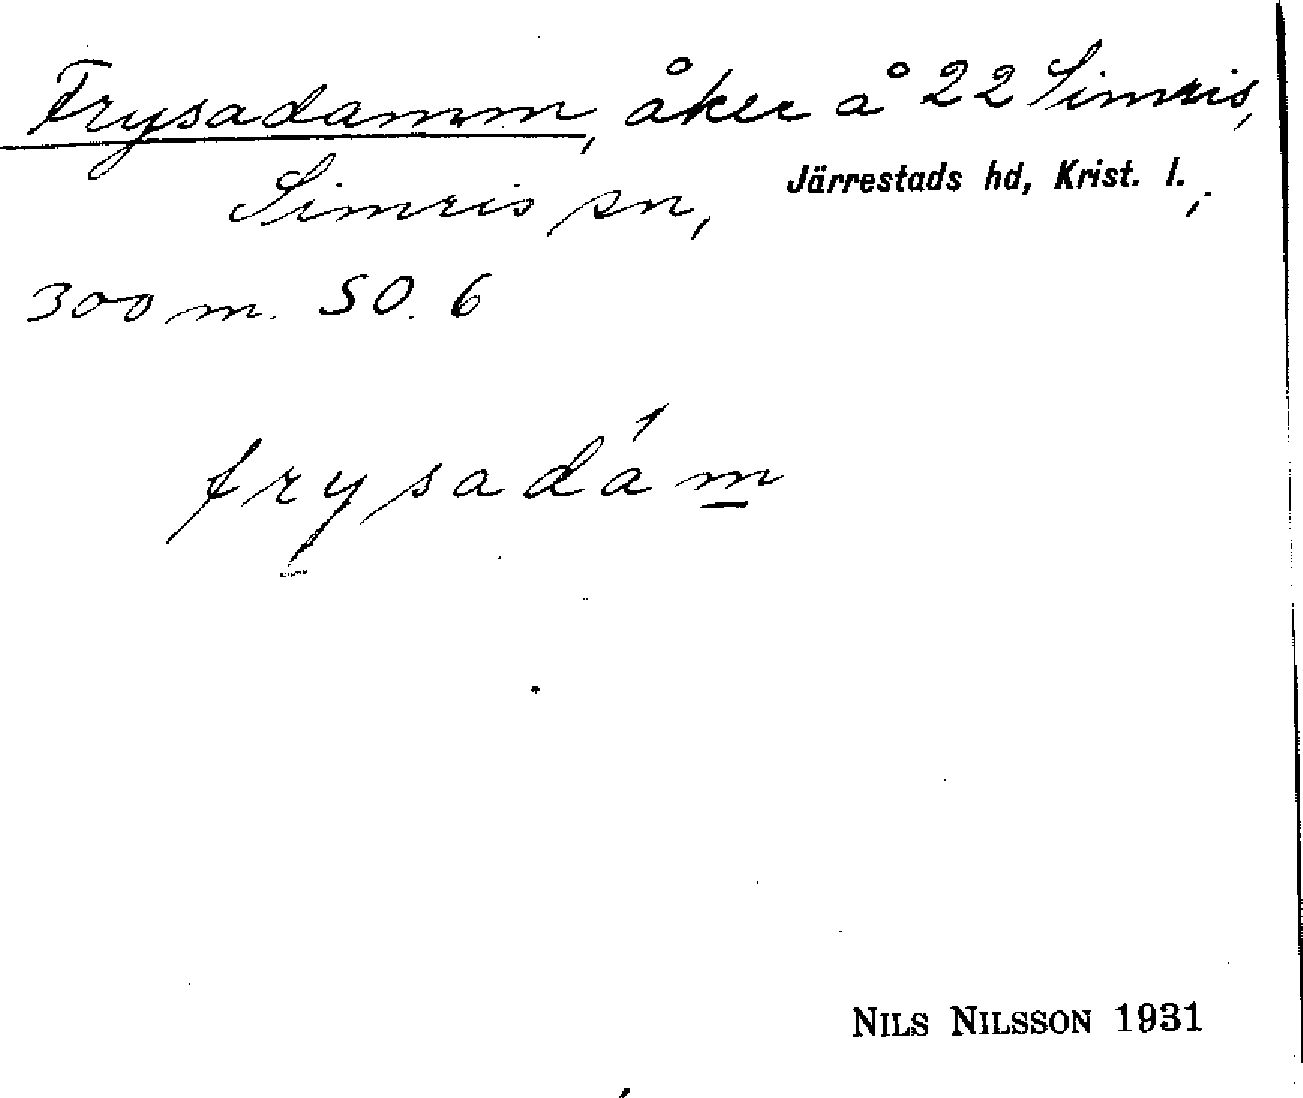 Frysadamm, åker å 22 Simris,
Simris sn, Järrestads hd, Krist. l.;
300 m. SO. 6
frysadám̲
NILS NILSSON 1931